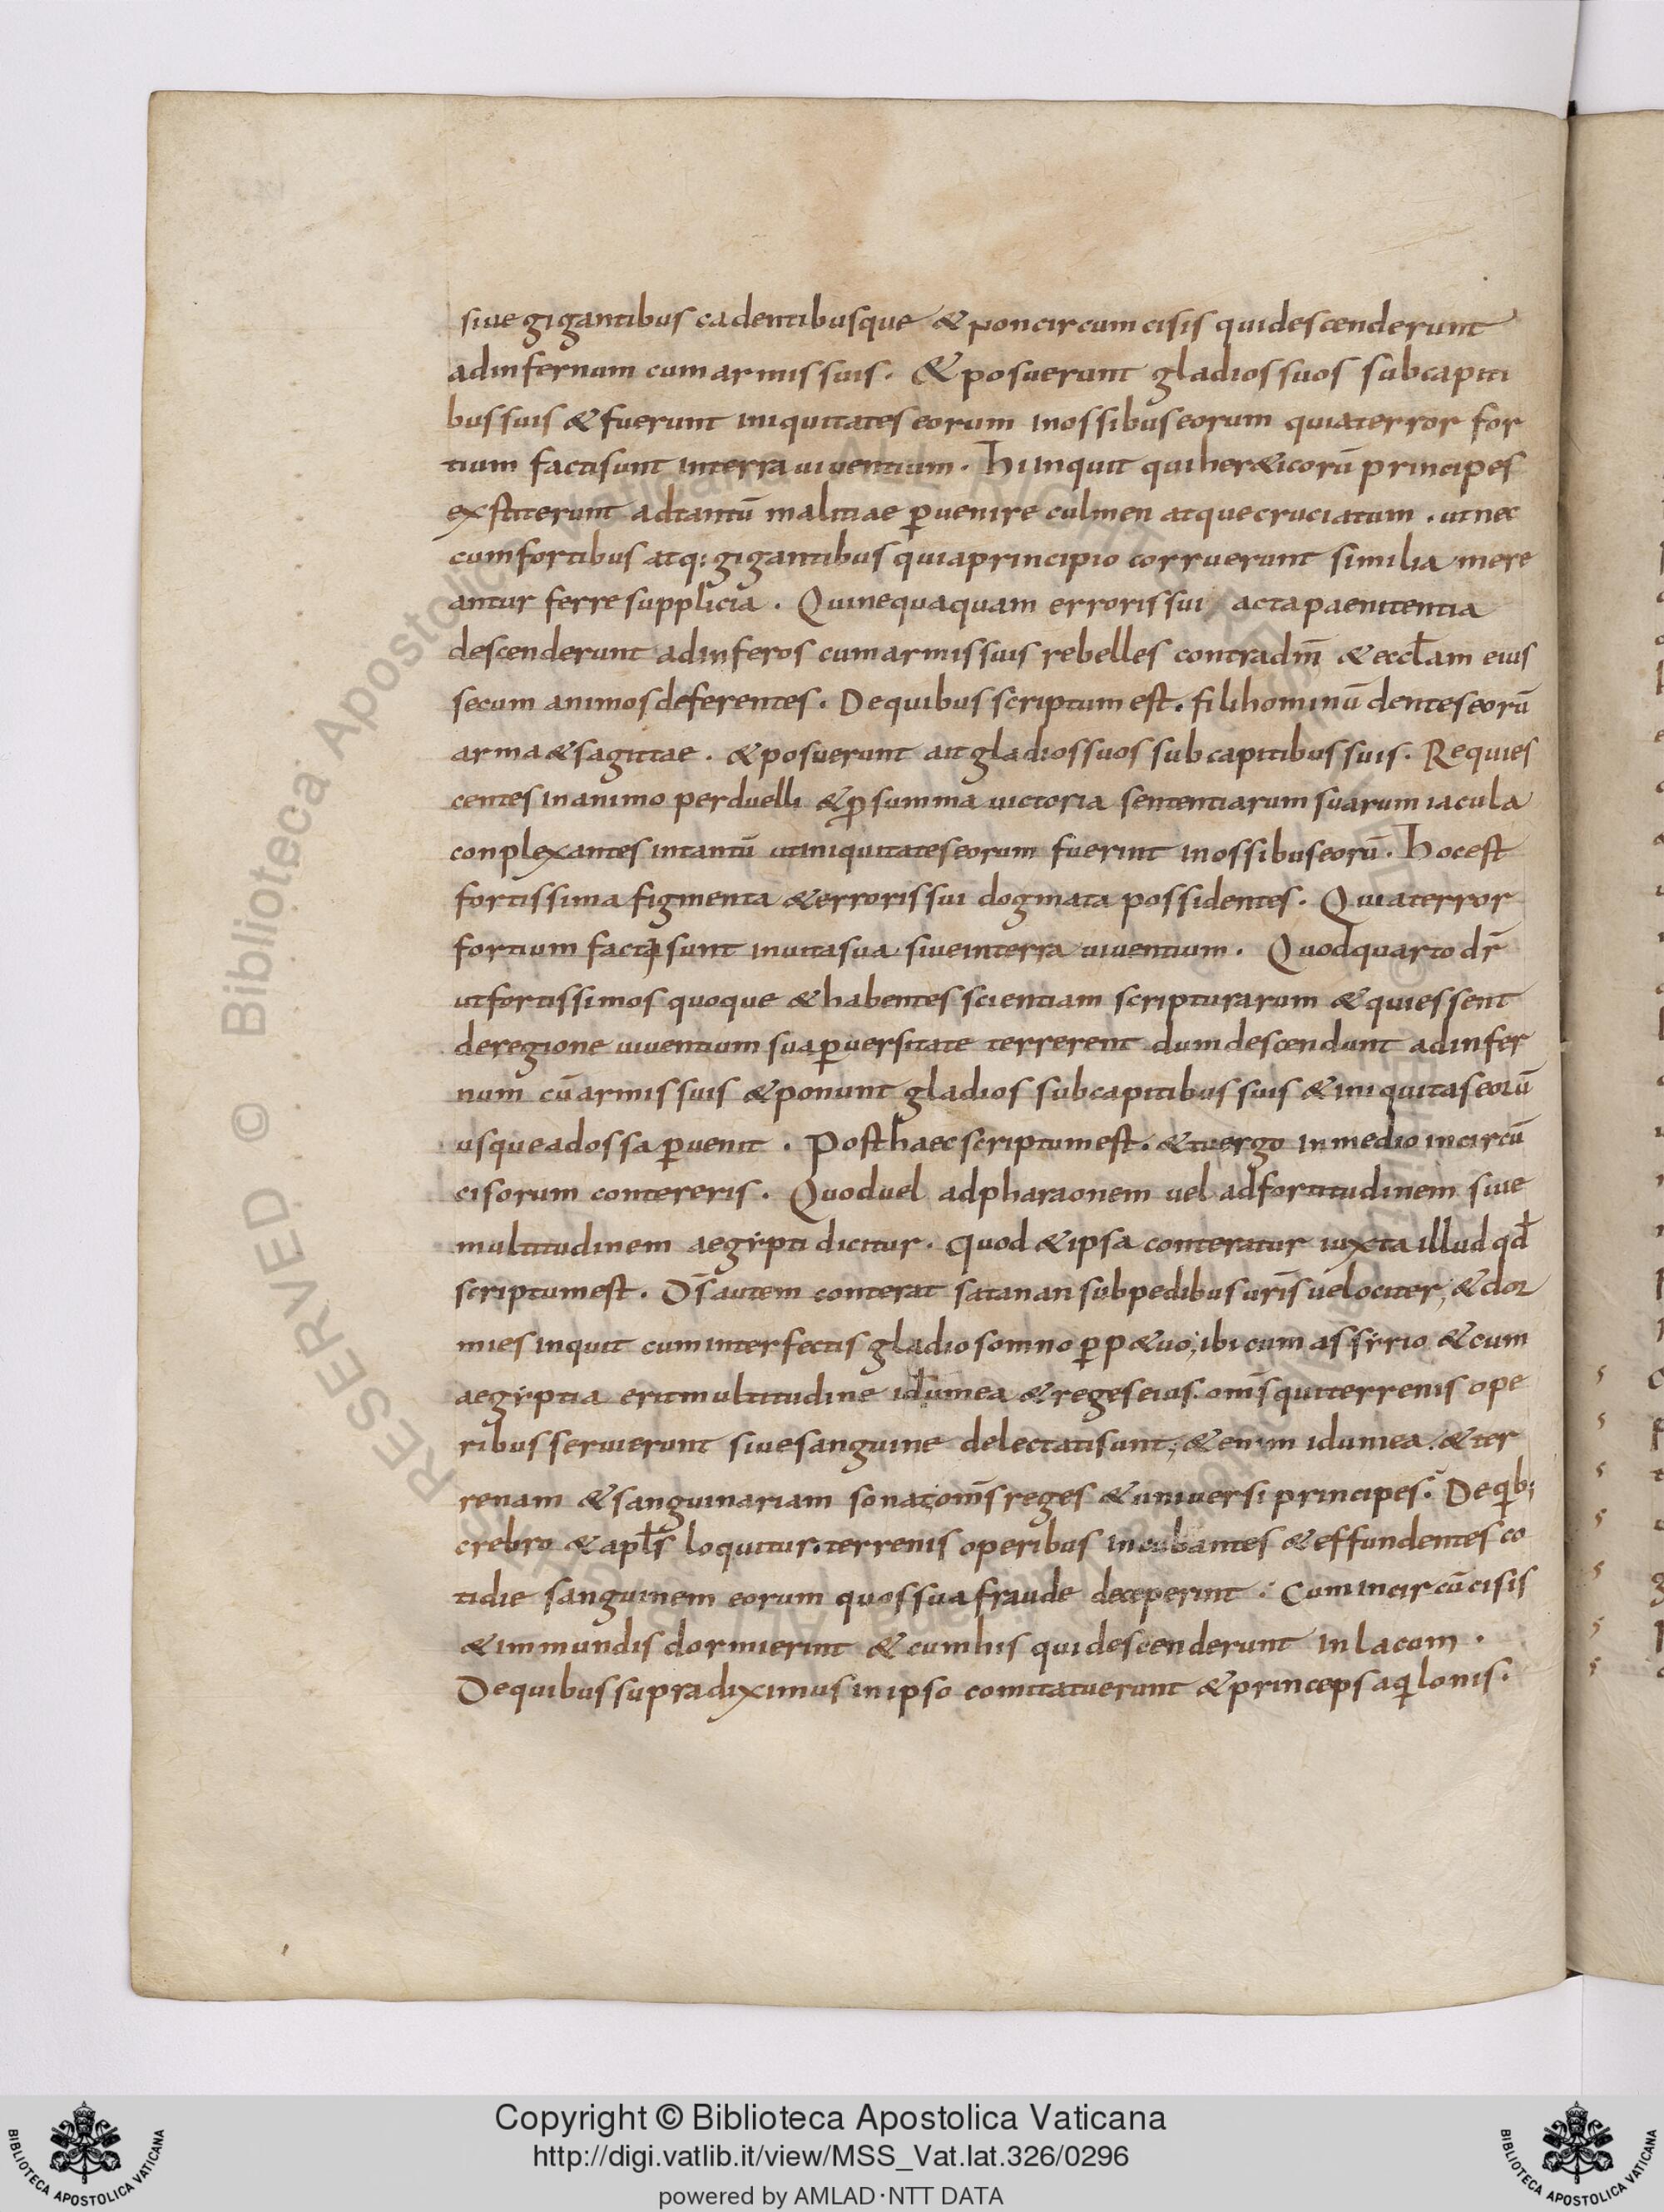 siue gigantibus cadentibusque & poncircumcisis qui descenderunt
ad infernum cum armis suis. & posuerunt gladios suos sub capiti
bus suis & fuerunt iniquitates eorum in ossibus eorum quia terror for
tium facti sunt in terra uiuentium. Hi inquit qui her&icorū principes
exstiterunt ad tantū malitiae ꝑuenire culmen atque cruciatum. ut nec
cum fortibus atq: gigantibus qui a principio corruerunt similia mere
antur ferre supplicia. Qui nequaquam erroris sui acta paenitentia
descenderunt ad inferos cum armis suis rebelles contra dm̄ & eccłam eius
secum animos deferentes. De quibus scriptum est. fili hominū dentes eorū
arma & sagittae. & posuerunt ait gladios suos sub capitibus suis. Requies
centes in animo perduelli & ꝓ summa uictoria sententiarum suarum iacula
conplexantes in tantū ut iniquitates eorum fuerint in ossibus eorū. Hoc est
fortissima figmenta & erroris sui dogmata possidentes. Quia terror
fortium facti sunt in uita sua siue in terra uiuentium. Quod quarto dr̄
ut fortissimos quoque & habentes scientiam scripturarum & qui essent
de regione uiuentium sua ꝑuersitate terrerent dum descendunt ad infer
num cū armis suis & ponunt gladios sub capitibus suis & iniquitas eorū
usque ad ossa ꝑuenit. Post haec scriptum est. & tu ergo in medio incircū
cisorum contereris. Quod uel ad pharaonem uel ad fortitudinem siue
multitudinem aegypti dicitur. quod & ipsa conteratur iuxta illud qđ
scriptum est. Ds̄ autem conterat satanan sub pedibus uris̄ uelociter; & dor
mies inquit cum interfectis gladio somno ꝑp&uo; ibi cum assyrio & cum
aegyptia erit multitudine idumea & reges eius. omīs qui terrenis ope
ribus seruierunt siue sanguine delectati sunt; & enim idumea & ter
renam & sanguinariam sonat; omīs reges & uniuersi principes. De qib;
crebro & aplś loquitur. terrenis operibus incubantes & effundentes co
tidie sanguinem eorum quos sua fraude deceperint. Cum incircūcisis
& immundis dormierint & cum his qui descenderunt in lacum.
De quibus supra diximus in ipso comitatu erunt & princeps aqilonis.
Copyright © Biblioteca Apostolica Vaticana
http://digi.vatlib.it/view/MSS_Vat.lat.326/0296
powered by AMLAD·NTT DATA
BIBLIOTECA APOSTOLICA VATICANA
BIBLIOTECA APOSTOLICA VATICANA